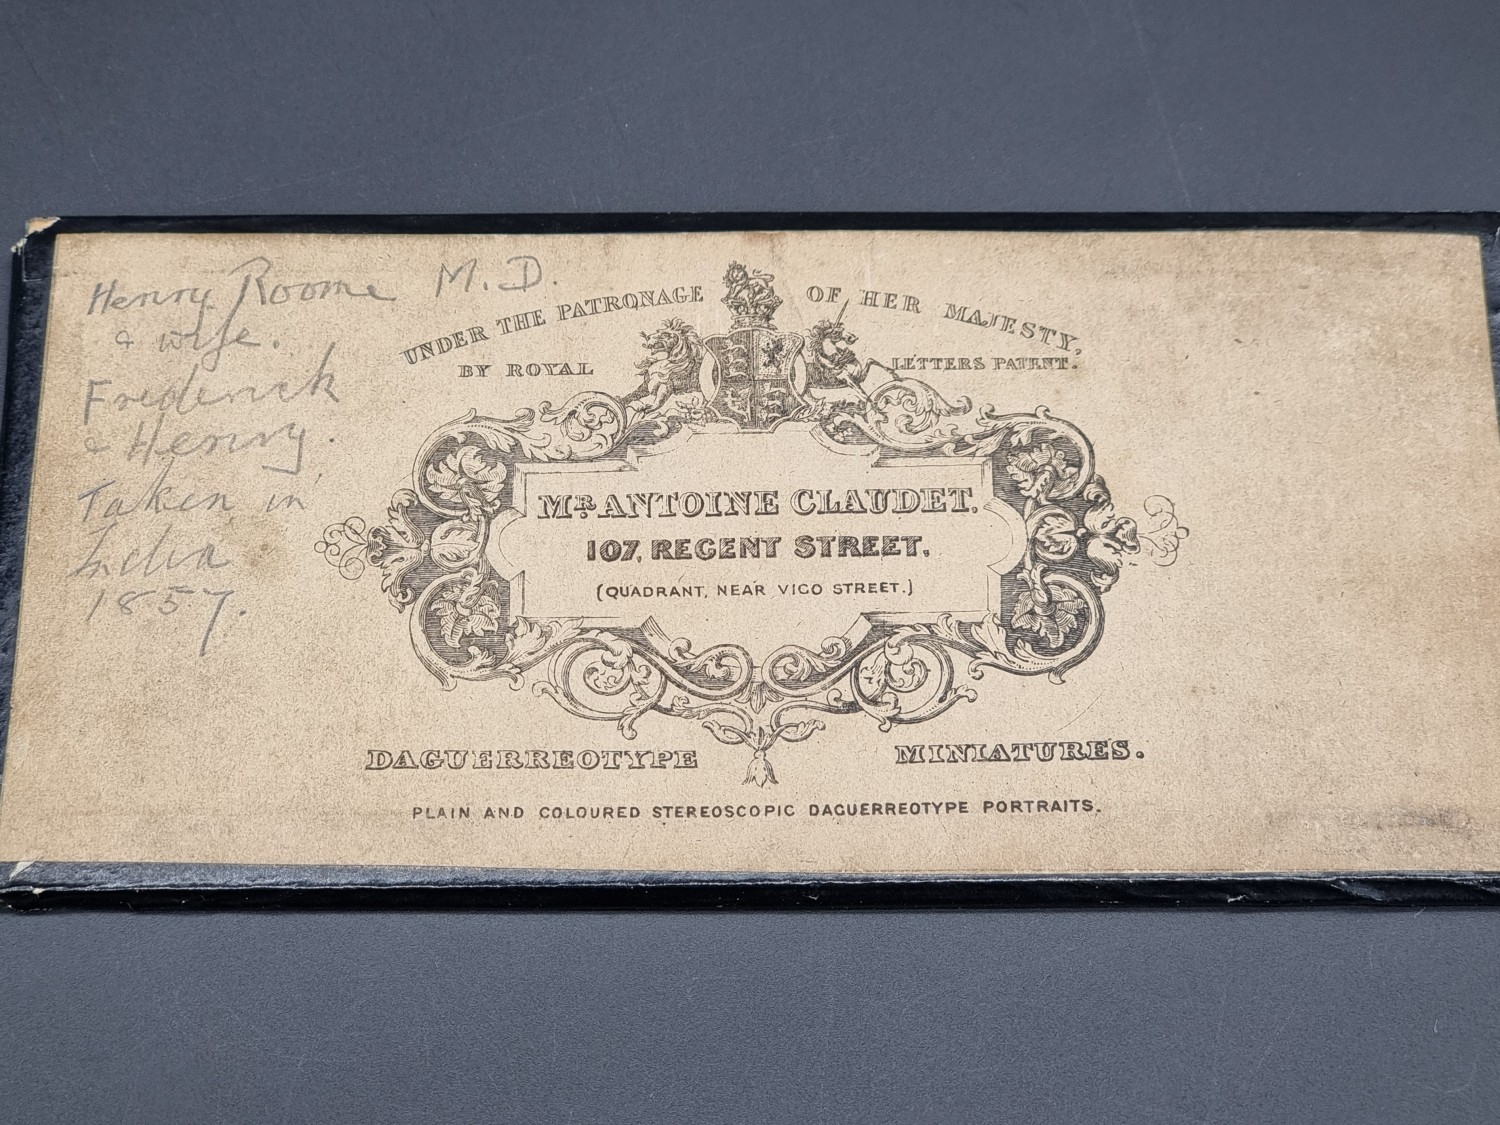 Henry Roome M.D.
& wife.
Frederick
& Henry.
Taken in
India
1857.
UNDER THE PATRONAGE OF HER MAJESTY,
BY ROYAL LETTERS PATENT.
MR ANTOINE CLAUDET.
107, REGENT STREET,
(QUADRANT, NEAR VIGO STREET.)
DAGUERREOTYPE MINIATURES.
PLAIN AND COLOURED STEREOSCOPIC DAGUERREOTYPE PORTRAITS.